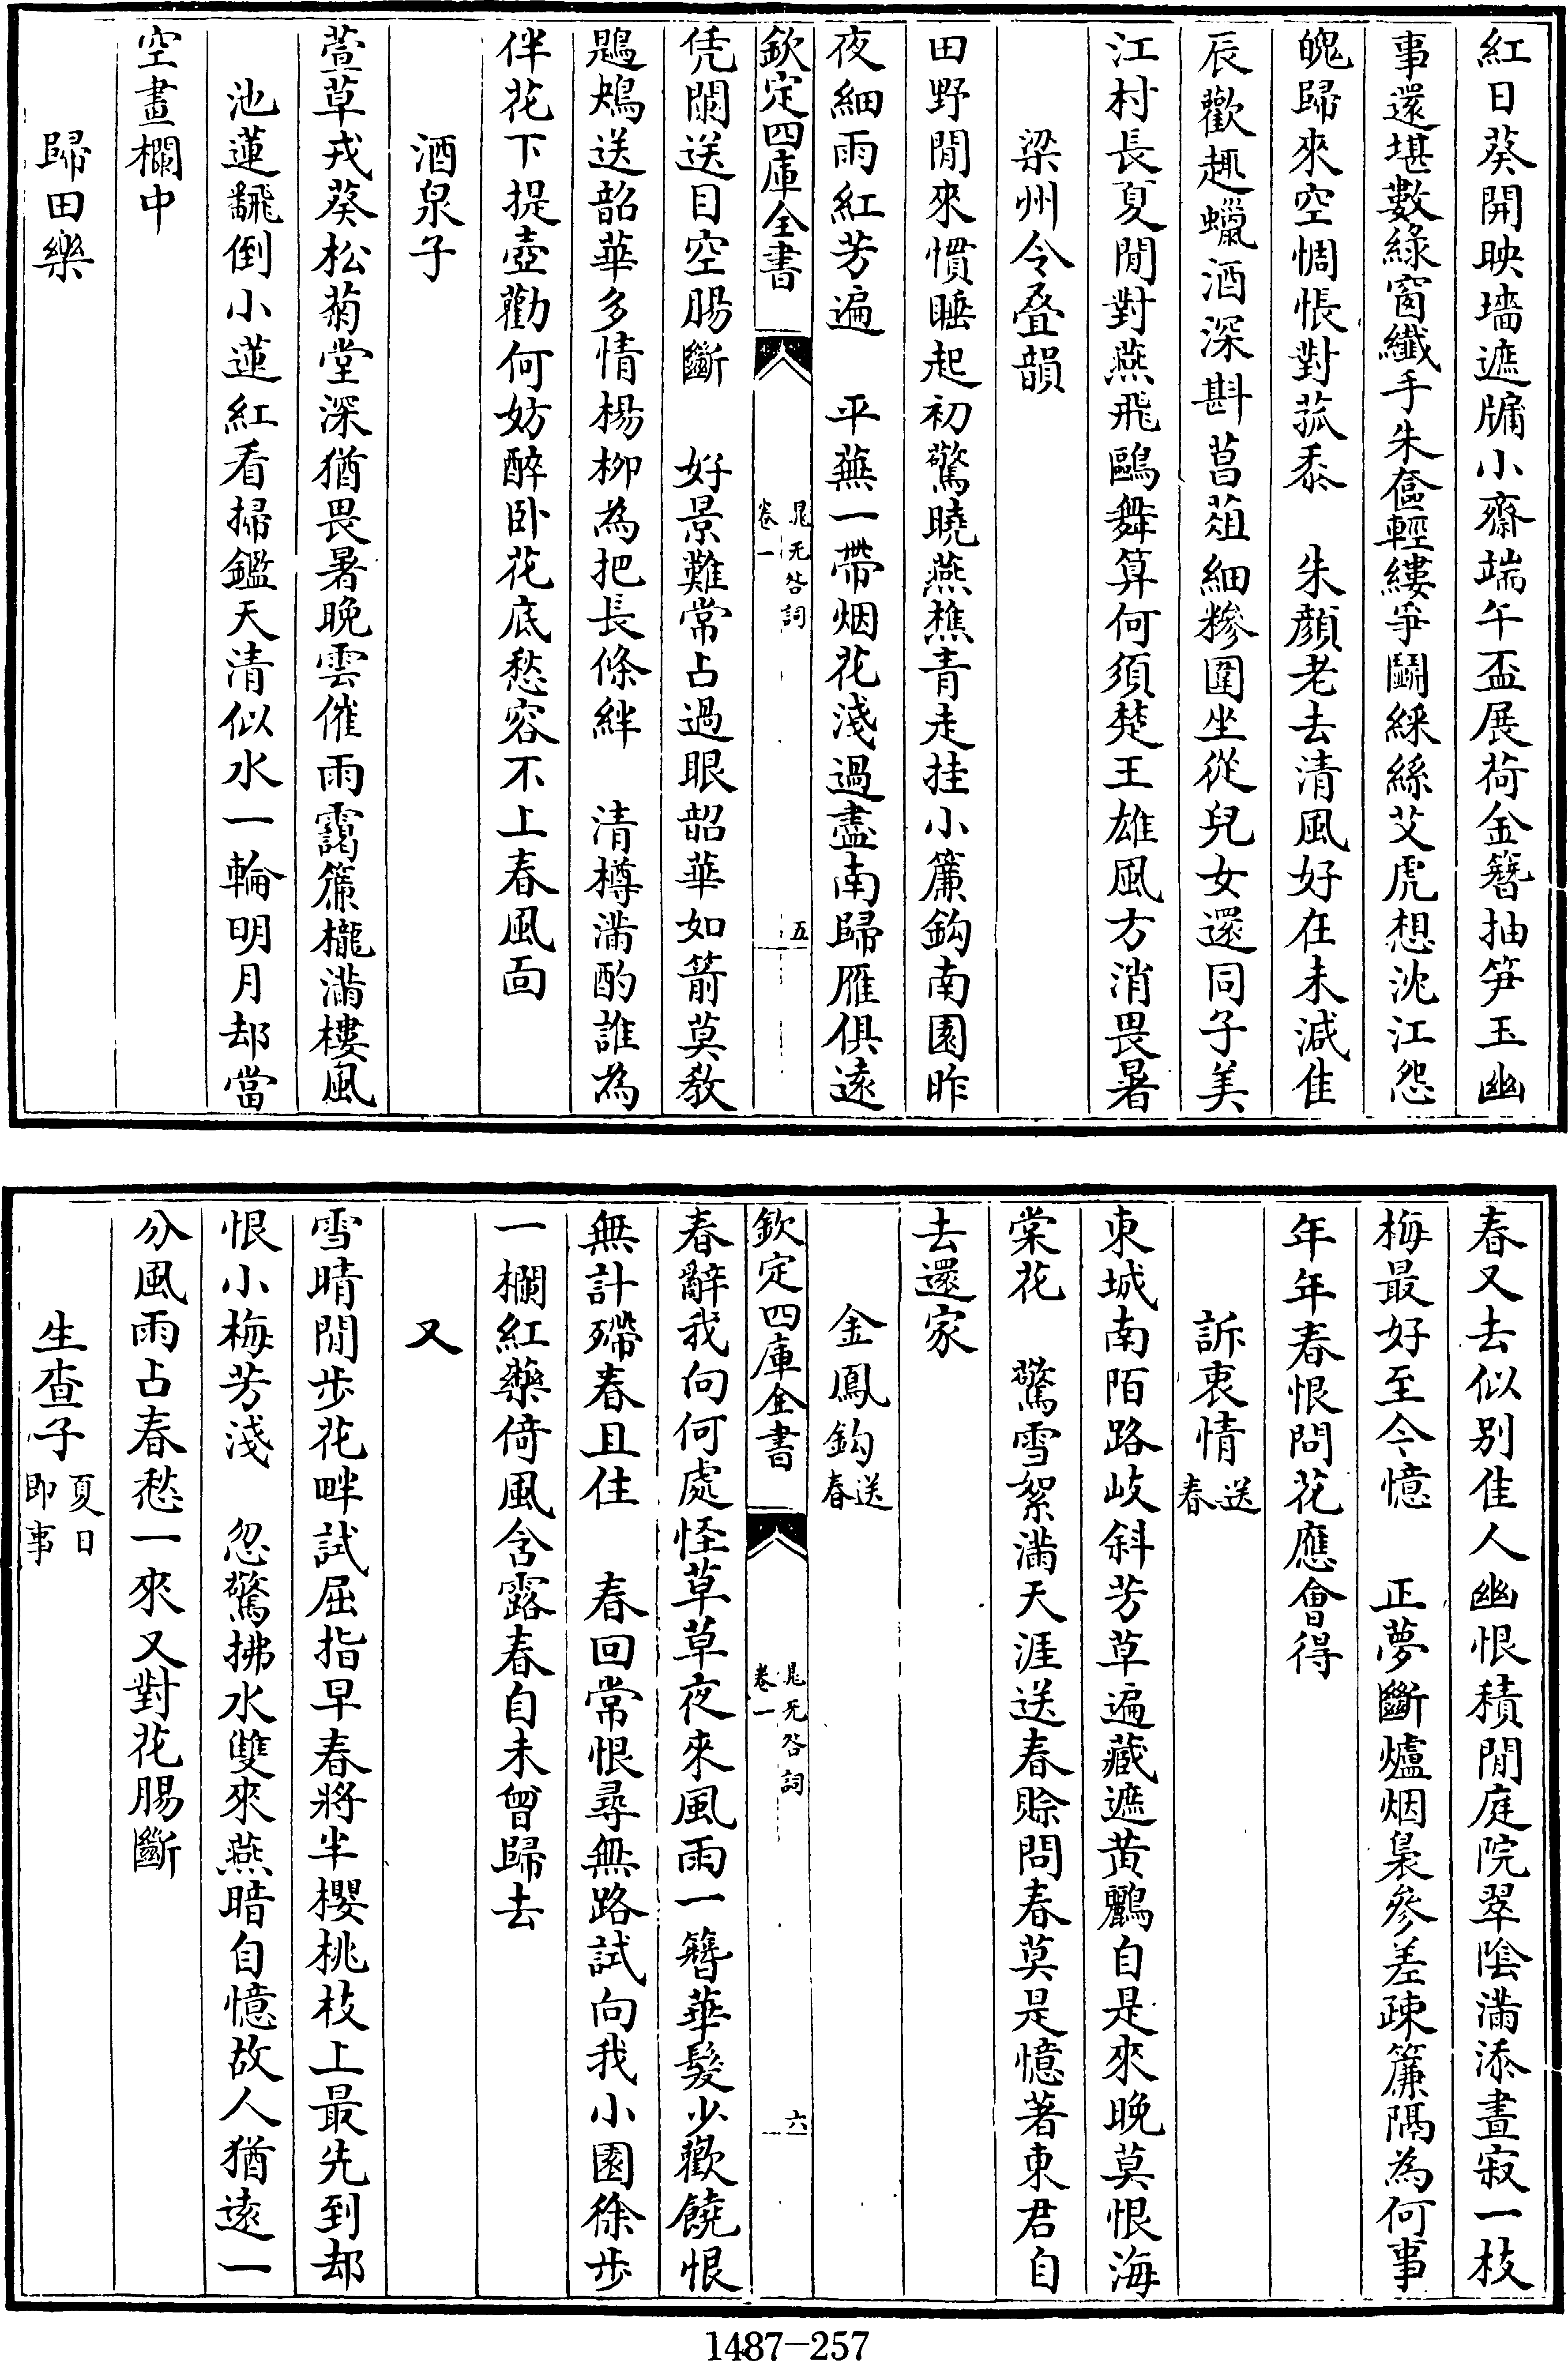 紅日葵開映墻遮牖小齋端午盃展荷金簪抽笋玉幽
事還堪數綠窗纖手朱奩輕縷爭鬭綵絲艾虎想沈江怨
魄歸來空惆悵對菰黍　朱顏老去清風好在未減佳
辰歡趣蠟酒深斟菖葅細糝圍坐從兒女還同子美
江村長夏閒對燕飛鷗舞算何須楚王雄風方消畏暑
梁州令叠韻
田野閒來慣睡起初驚曉燕樵青走挂小簾鈎南園昨
夜細雨紅芳遍　平蕪一帶烟花淺過盡南歸雁俱遠
欽定四庫全書　晁无咎詞　卷一　五
凭闌送目空腸斷　好景難常占過眼韶華如箭莫敎
鶗鴂送韶華多情楊柳為把長條絆　清樽滿酌誰為
伴花下提壺勸何妨醉卧花底愁容不上春風面
酒泉子
萱草戎葵松菊堂深猶畏暑晚雲催雨靄簾櫳滿樓風
池蓮飜倒小蓮紅看掃鑑天清似水一輪明月却當
空畫欄中
歸田樂
春又去似别佳人幽恨積閒庭院翠陰滿添晝寂一枝
梅最好至今憶　正夢斷爐烟裊參差疎簾隔為何事
年年春恨問花應會得
訴衷情送春
東城南陌路岐斜芳草遍藏遮黄鸝自是來晚莫恨海
棠花　驚雪絮滿天涯送春賒問春莫是憶著東君自
去還家
金鳳鈎送春
欽定四庫全書　晁无咎詞　卷一　六
春辭我向何處怪草草夜來風雨一簪華髮少歡饒恨
無計殢春且住　春回常恨尋無路試向我小園徐步
一欄紅藥倚風含露春自未曾歸去
又
雪晴閒步花畔試屈指早春將半櫻桃枝上最先到却
恨小梅芳淺　忽驚拂水雙來燕暗自憶故人猶遠一
分風雨占春愁一來又對花腸斷
生查子夏日即事
1487-257